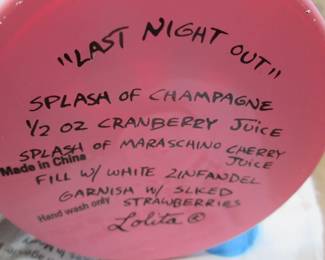 "LAST NIGHT OUT"
SPLASH OF CHAMPAGNE
1/2 OZ CRANBERRY JUICE
SPLASH OF MARASCHINO CHERRY
JUICE
Made in China
FILL W/ WHITE ZINFANDEL
GARNISH W/ SLICED
Hand wash only
STRAWBERRIES
Lolita ®